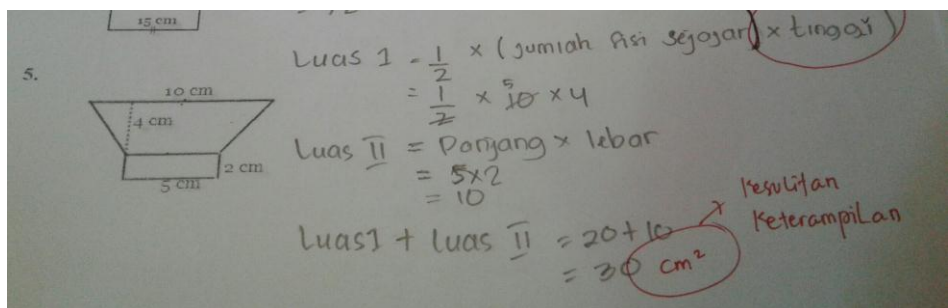 15 cm
5.
10 cm
4 cm
2 cm
5 cm
Luas 1 = 1/2 × (jumlah sisi sejajar) × tinggi)
= 1/2 × 10 5 × 4
Luas II = Panjang × lebar
= 5×2
= 10
Luas1 + luas II = 20+10
= 30 cm²
kesulitan
keterampilan